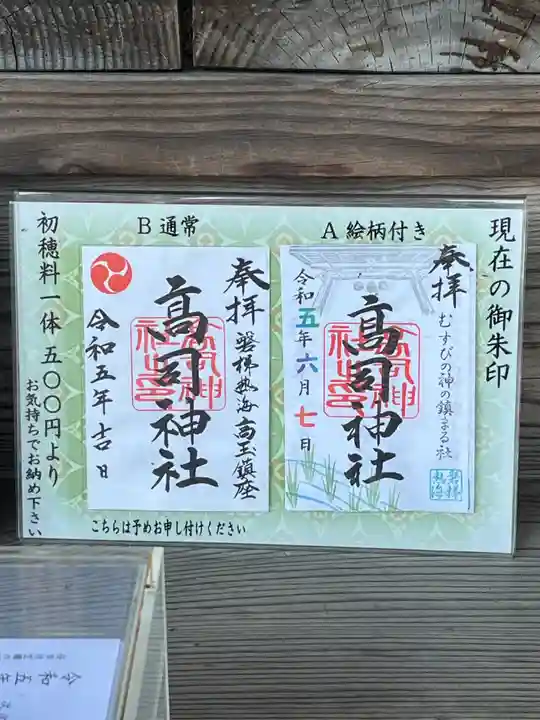 現在の御朱印
A 絵柄付き
奉拝
むすびの神の鎮まる社
高司神社
令和五年六月七日
磐梯熱海
B 通常
奉拝
磐梯熱海高玉鎮座
高司神社
令和五年吉日
こちらは予めお申し付けください
初穂料一体 五〇〇円より
お気持ちでお納め下さい